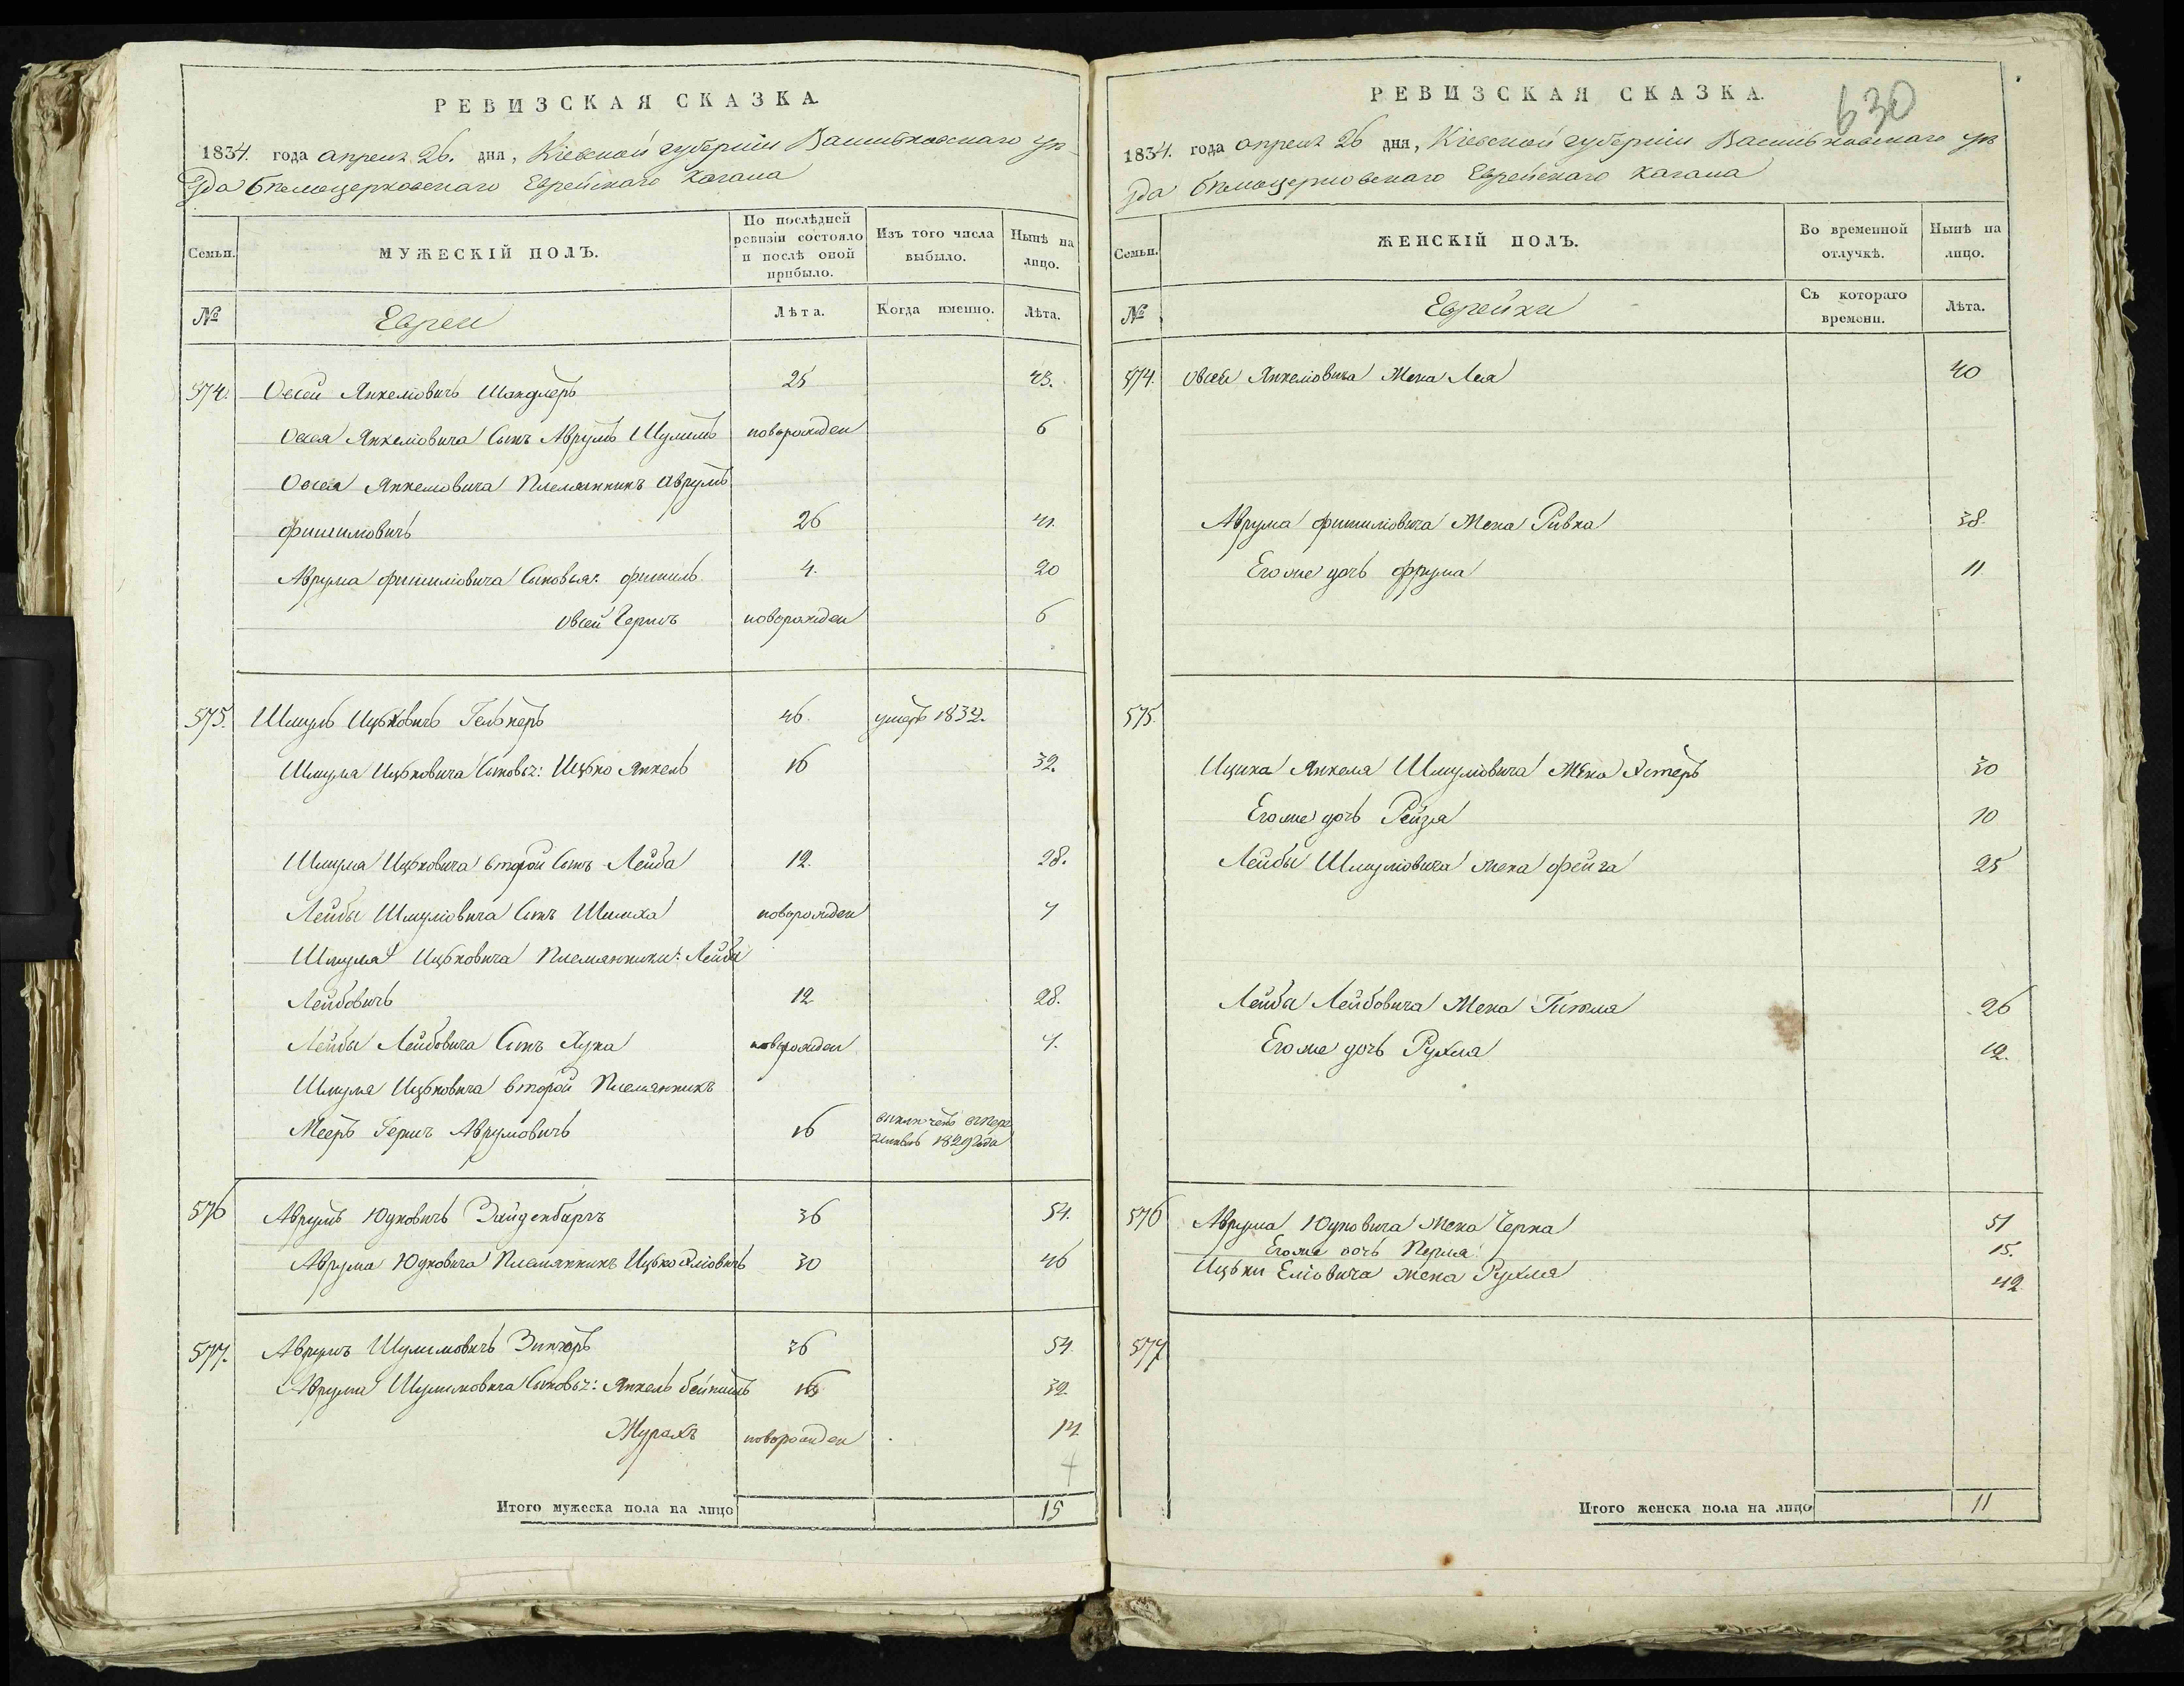 РЕВИЗСКАЯ СКАЗКА.
1834. года апреля 26. дня, Кіевской губерніи Васильковскаго уѣ-
зда бѣлоцерковскаго Еврейскаго кагала
Семьи.
МУЖЕСКІЙ ПОЛЪ.
По послѣдней ревизіи состояло и послѣ оной прибыло.
Изъ того числа выбыло.
Нынѣ на лицо.
№
Евреи
Лѣта.
Когда именно.
Лѣта.
574. Овсей Янкеліовичъ 25 43.
Овсея Янкеліовича Сынъ Аврумъ Шулимъ новорожден 6
Овсея Янкеліовича Племянникъ Аврумъ
фишиліовичъ 26
Аврума фишиліовича Сыновья: фишиль 4. 20
Овсей Гершъ новорожден 6
575. Шмуль Ицьковичъ 46. умеръ 1832.
Шмуля Ицьковича Сыновья: Ицько Янкель 16 32.
Шмуля Ицьковича второй Сынъ Лейба 12. 28.
Лейбы Шмуліовича Сынъ Шимха новорожден 7
Шмуля Ицьковича Племянники: Лейба
Лейбовичъ 12 28.
Лейбы Лейбовича Сынъ новорожден 7.
Шмуля Ицьковича второй Племянникъ
Мееръ Герша Аврумовичъ 16 1829 года
576 Аврумъ Юдковичъ Вайденбаргъ 36 54.
Аврума Юдковича Племянникъ Ицько Еліовичъ 30 46
577. Аврумъ Шулимовичъ 36 54
Аврума Шулимовича Сыновья: Янкель Бейнишъ 16 32.
новорожден 14.
Итого мужеска пола на лицо 15
РЕВИЗСКАЯ СКАЗКА.
630
1834. года апреля 26 дня, Кіевской губерніи Васильковскаго уѣ
зда бѣлоцерковскаго Еврейскаго кагала
Семьи.
ЖЕНСКІЙ ПОЛЪ.
Во временной отлучкѣ.
Нынѣ на лицо.
№
Еврейки
Съ котораго времени.
Лѣта.
574. Овсея Янкеліовича Жена Лея 40
Аврума фишиліовича Жена Ривка 38.
Его же дочь фрума 11
575.
Ицика Янкеля Шмуліовича Жена Эстеръ 30
Его же дочь Рейзя 10
Лейбы Шмуліовича жена фейга 25
Лейбы Лейбовича Жена Гитля 26
Его же дочь Рухля 12.
576 Аврума Юдковича жена Черна 51
Его же дочь Перля 15.
Ицьки Еліовича жена Рухля 42
577
Итого женска пола на лицо 11